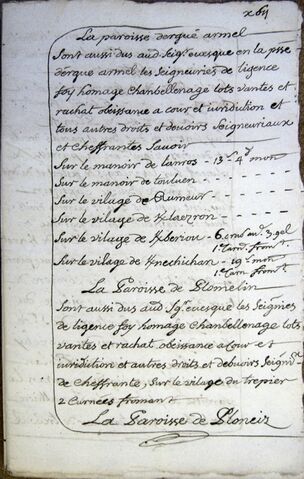 La paroisse dergue armel
Sont aussi dus aud Seigr. evesque en la psse
dergue armel les Seigneuries de ligence
foy homage Chanbellenage lots vantes et
rachat obeissance a cour et iuridiution et
tous autres droits et devoirs Seigneuriaux
et Cheffrantes Savoir
Sur le manoir de lanros - 13s 4d mon
Sur le manoir de touluen -
Sur le vilage de
Sur le vilage de
Sur le vilage de - 6 3 gel
Sur le vilage de - mon
La Paroisse de Plomelin
Sont aussi dus aud Sgr. evesque les Seignies
de ligence foy homage Chanbellenage lots
vantes et rachat, obeissance a Cour et
iuridiution et autres droits et debvoirs Seign
de Cheffrante, Sur le vilage du trepier
2 Carnées fromant
La Paroisse de Ploneiz